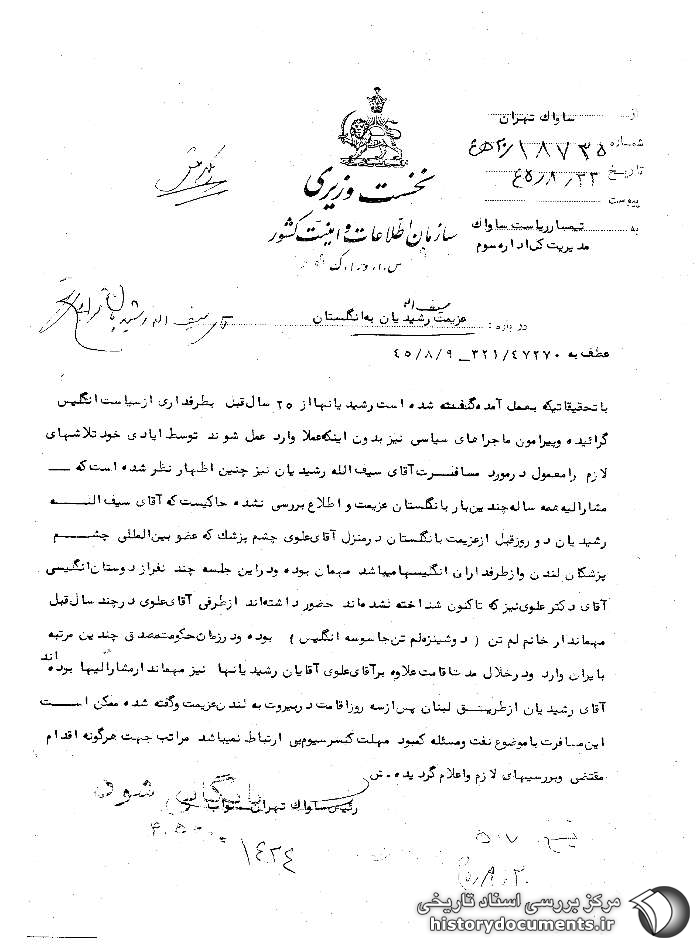 از ساواک تهران
شماره ۱۸۷۳۵/۲۰ه‍ ع
تاریخ ۴۵/۸/۲۳
پیوست
به تیمسار ریاست ساواک
مدیریت کل اداره سوم
نخست وزیری
سازمان اطلاعات و امنیت کشور
س.ا.و.ا.ک
درباره: عزیمت سیف اله رشیدیان به انگلستان
عطف به ۳۲۱/۴۷۲۷۰ - ۴۵/۸/۹
با تحقیقاتیکه بعمل آمده گفته شده است رشیدیانها از ۲۵ سال قبل بطرفداری از سیاست انگلیس
گرائیده و پیرامون ماجراهای سیاسی نیز بدون اینکه عملا وارد عمل شوند توسط ایادی خود تلاشهای
لازم را معمول در مورد مسافرت آقای سیف الله رشیدیان نیز چنین اظهار نظر شده است که
مشارالیه همه ساله چندین بار بانگلستان عزیمت و اطلاع بررسی نشده حاکیست که آقای سیف اله
رشیدیان دو روز قبل از عزیمت بانگلستان در منزل آقای علوی چشم پزشک که عضو بین‌المللی چشم
پزشکان لندن و از طرفداران انگلیسها میباشد مهمان بوده و در این جلسه چند نفر از دوستان انگلیسی
آقای دکتر علوی نیز که تاکنون شناخته نشده‌اند حضور داشته‌اند از طرفی آقای علوی در چند سال قبل
مهماندار خانم لم تن ( دوشیزه لم تن جاسوسه انگلیس ) بوده و در زمان حکومت مصدق چندین مرتبه
بایران وارد و در خلال مدت اقامت علاوه بر آقای علوی آقایان رشیدیانها نیز مهماندار مشارالیها بوده‌اند
آقای رشیدیان از طریق لبنان پس از سه روز اقامت در بیروت به لندن عزیمت و گفته شده ممکن است
این مسافرت با موضوع نفت و مسئله کمبود مهلت کنسرسیوم بی ارتباط نمیباشد مراتب جهت هرگونه اقدام
مقتضی و بررسیهای لازم اعلام گردیده. ش
رئیس ساواک تهران نواب
بایگانی شود
۱۴۲۴
۵۰۷
مرکز بررسی اسناد تاریخی
historydocuments.ir